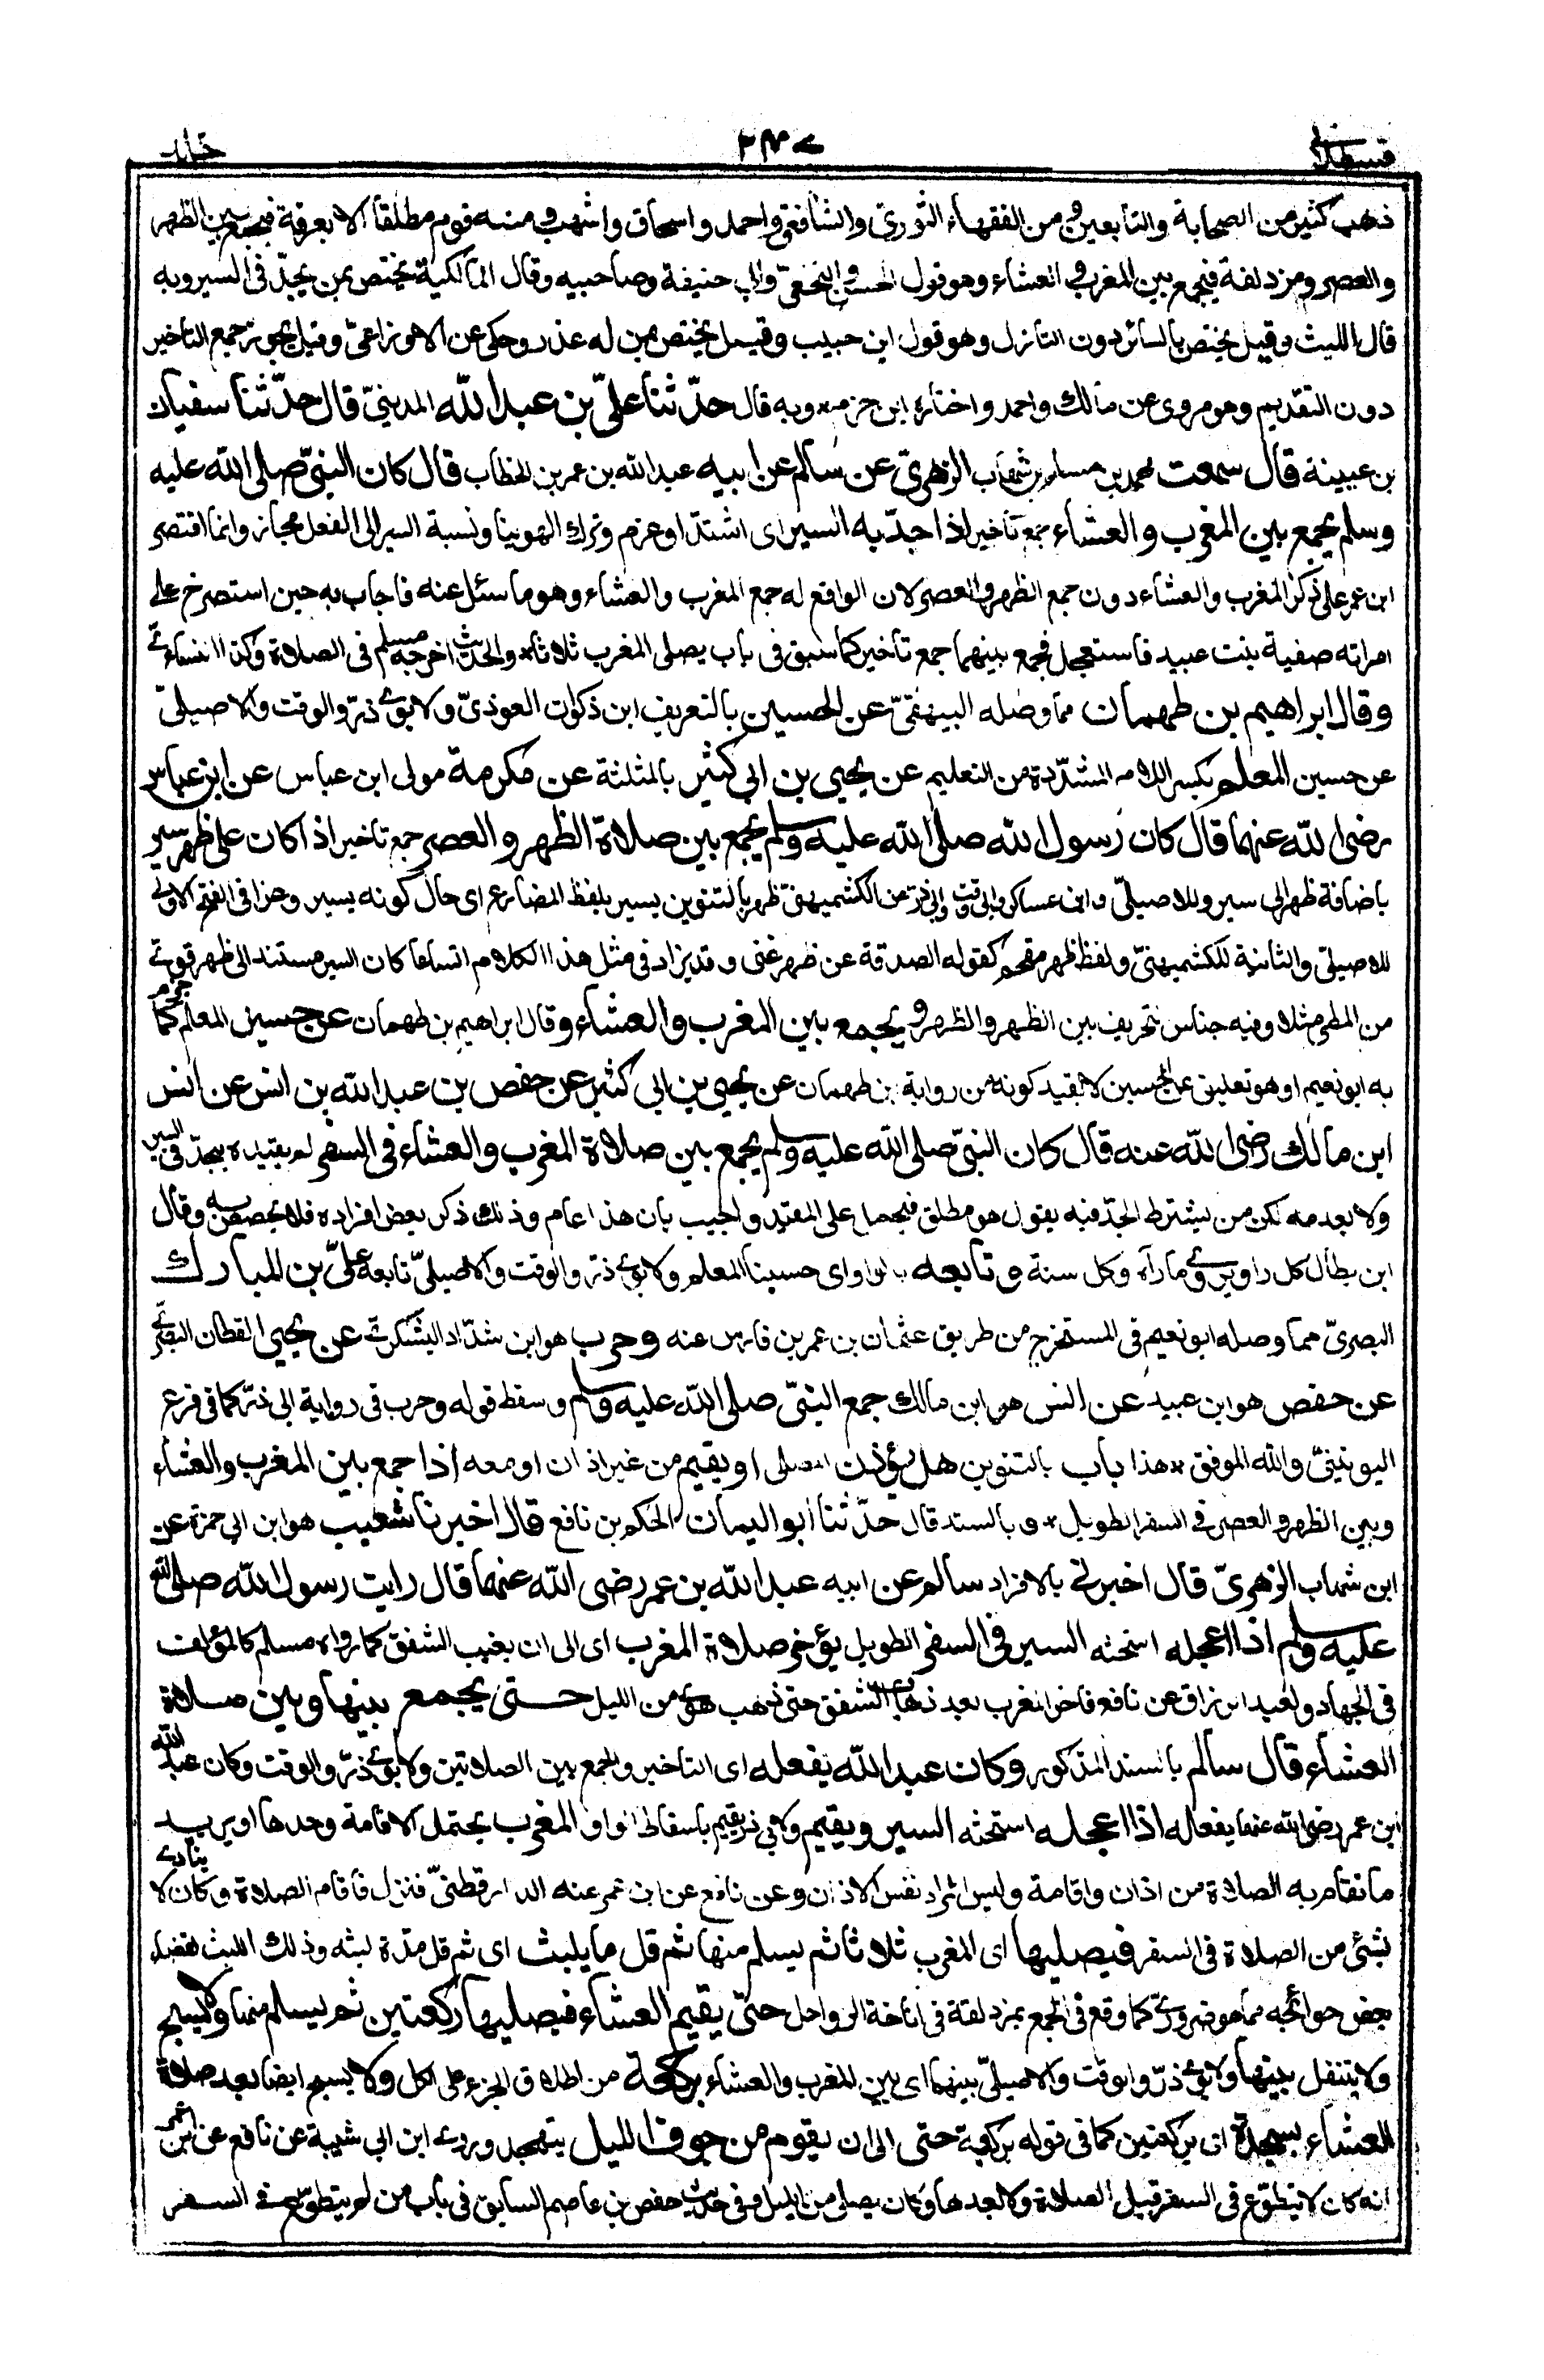 قسطلانی ٢٤٧ خامد
ذهب كثير من الصحابة والتابعين ومن الفقهاء الثوري والشافعي واحمد واسحاق واشهب ومنعه قوم مطلقا الا بعرفة فيجمع بين الظهر
والعصر ومزدلفة فيجمع بين المغرب والعشاء وهو قول الحسن والنخعي وابي حنيفة وصاحبيه وقال المالكية يختص بمن يجدّ في السير وبه
قال الليث وقيل يختص بالسائر دون النازل وهو قول ابن حبيب وقيل يختص بمن له عذر وحكي عن الاوزاعي وقيل يجوز جمع التاخير
دون التقديم وهو مروى عن مالك واحمد واختاره ابن حزم * وبه قال حدّثنا علىّ بن عبد الله المدينيّ قال حدّثنا سفيان
بن عيينة قال سمعت محمد بن مسلم بن شهاب الزهريّ عن سالم عن ابيه عبد الله بن عمر بن الخطاب قال كان النبيّ صلى الله عليه
وسلم يجمع بين المغرب والعشاء جمع تأخير اذا جدّ به السير اى اشتدّ او عزم وترك الهوينا ونسبة السير الى الفعل مجاز وانما اقتصر
ابن عمر على ذكر المغرب والعشاء دون جمع الظهر والعصر لان الواقع له جمع المغرب والعشاء وهو ما سئل عنه فاجاب به حين استصرخ على
امراته صفية بنت عبيد فاستعجل فجمع بينهما جمع تأخير كما سبق في باب يصلى المغرب ثلاثا * والحديث اخرجه مسلم في الصلاة وكذا النسائيّ
وقال ابراهيم بن طهمان مما وصله البيهقيّ عن الحسين بالتعريف ابن ذكوان العوذيّ ولابوي ذرّ والوقت والاصيليّ
عن حسين المعلم بكسر اللام المشدّدة من التعليم عن يحيى بن ابي كثير بالمثلثة عن عكرمة مولى ابن عباس عن ابن عباس
رضى الله عنهما قال كان رسول الله صلى الله عليه وسلم يجمع بين صلاة الظهر والعصر جمع تأخير اذا كان على ظهر سير
باضافة ظهر الى سير وللاصيليّ وابن عساكر وابي الوقت وابي ذرّ عن الكشميهنيّ ظهر بالتنوين يسير بلفظ المضارع اى حال كونه يسير وعزا في الفتح الاولى
للاصيليّ والثانية للكشميهنيّ ولفظ ظهر مقحم كقوله الصدقة عن ظهر غنى وقد يزاد في مثل هذا الكلام اتساعا كان السير مستند الى ظهر قوىّ
من المطي مثلا وفيه جناس تحريف بين الظهر والظهر ويجمع بين المغرب والعشاء وقال ابراهيم بن طهمان عن حسين المعلم كما جزم
به ابو نعيم او هو تعليق عن الحسين لا بقيد كونه من رواية بن طهمان عن يحيى بن ابي كثير عن حفص بن عبد الله بن انس عن انس
ابن مالك رضى الله عنه قال كان النبيّ صلى الله عليه وسلم يجمع بين صلاة المغرب والعشاء في السفر لم يقيده بجدّ في السير
ولا بعدمه لكن من يشترط الجدّ فيه يقول هو مطلق فيحمل على المقيد واجيب بان هذا عام وذلك ذكر بعض افراده فلا يخصص به وقال
ابن بطال كل راو يروى ما رآه وكل سنة * وتابعه بالواو اى حسينا المعلم ولابوي ذرّ والوقت والاصيليّ تابعه علىّ بن المبارك
البصريّ مما وصله ابو نعيم في المستخرج من طريق عثمان بن عمر بن فارس عنه وحرب هو ابن شدّاد اليشكريّ عن يحيى القطان البصريّ
عن حفص هو ابن عبيد عن انس هو ابن مالك جمع النبيّ صلى الله عليه وسلم وسقط قوله وحرب في رواية ابي ذرّ كما في فرع
اليونينيّ والله الموفق * هذا باب بالتنوين هل يؤذن المصلى او يقيم من غير اذان او معه اذا جمع بين المغرب والعشاء
وبين الظهر والعصر في السفر الطويل * وبالسند قال حدّثنا ابو اليمان الحكم بن نافع قال اخبرنا شعيب هو ابن ابي حمزة عن
ابن شهاب الزهريّ قال اخبرني بالافراد سالم عن ابيه عبد الله بن عمر رضى الله عنهما قال رايت رسول الله صلى الله
عليه وسلم اذا اعجله استحثه السير في السفر الطويل يؤخر صلاة المغرب اى الى ان يغيب الشفق كما رواه مسلم كالمؤلف
في الجهاد ولعبد الرزاق عن نافع فاخر المغرب بعد ذهاب الشفق حتى ذهب هوى من الليل حتى يجمع بينها وبين صلاة
العشاء قال سالم بالسند المذكور وكان عبد الله يفعله اى التاخير والجمع بين الصلاتين ولابوي ذرّ والوقت وكان عبد الله
ابن عمر رضى الله عنهما يفعله اذا اعجله استحثه السير ويقيم ولابي ذرّ يقيم باسقاط الواو المغرب يحتمل الاقامة وحدها او يريد
ما تقام به الصلاة من اذان واقامة وليس المراد نفس الاذان وعن نافع عن ابن عمر عند الدارقطنيّ فنزل فاقام الصلاة وكان لا ينادى
بشئ من الصلاة في السفر فيصليها اى المغرب ثلاثا ثم يسلم منها ثم قل ما يلبث اى ثم قل مدّة لبثه وذلك اللبث لقضاء
بعض حوائجه مما هو ضروريّ كما وقع في الجمع بمزدلفة في اناخة الرواحل حتى يقيم العشاء فيصليها ركعتين ثم يسلم منها ولا يسبح
ولا يتنفل بينها ولابوي ذرّ والوقت والاصيليّ بينهما اى بين المغرب والعشاء بركعة من اطلاق الجزء على الكل ولا يسبح ايضا بعد صلاة
العشاء بسجدة اى بركعتين كما في قوله بركعة حتى الى ان يقوم من جوف الليل يتهجد وروى ابن ابي شيبة عن نافع عن ابن عمر
انه كان لا يتطوّع في السفر قبل الصلاة ولا بعدها وكان يصلى من الليل وفي حديث حفص بن عاصم السابق في باب من لم يتطوّع في السفر